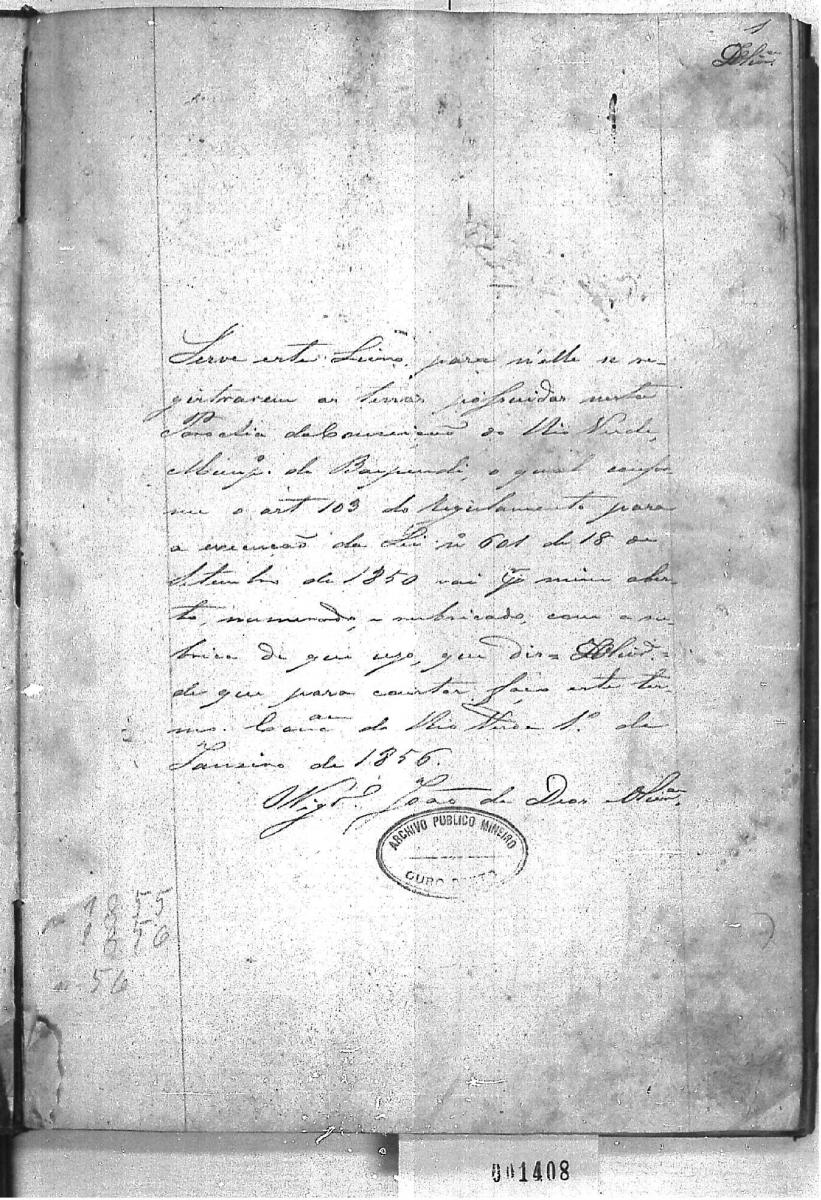 1
Olivr.ª
Serve este Livro para n'elle se re-
gistrarem as terras possuidas nesta
Parochia da Conceição do Rio Verde,
Munip.º de Baependi, o qual confor
me o art 103 do Regulamento para
a execução da Lei nº 601 de 18 de
Setembro de 1850 vai p.r mim aber-
to, numerado, e rubricado, com a ru-
brica de que uso, que diz = Olivr.ª =
de que para constar, faço este ter-
mo. Conc.am do Rio Verde 1º. de
Janeiro de 1856.
O Vig.rº João de Deos Olivr.ª
ARCHIVO PUBLICO MINEIRO
OURO PRETO
1855
1856
56
001408